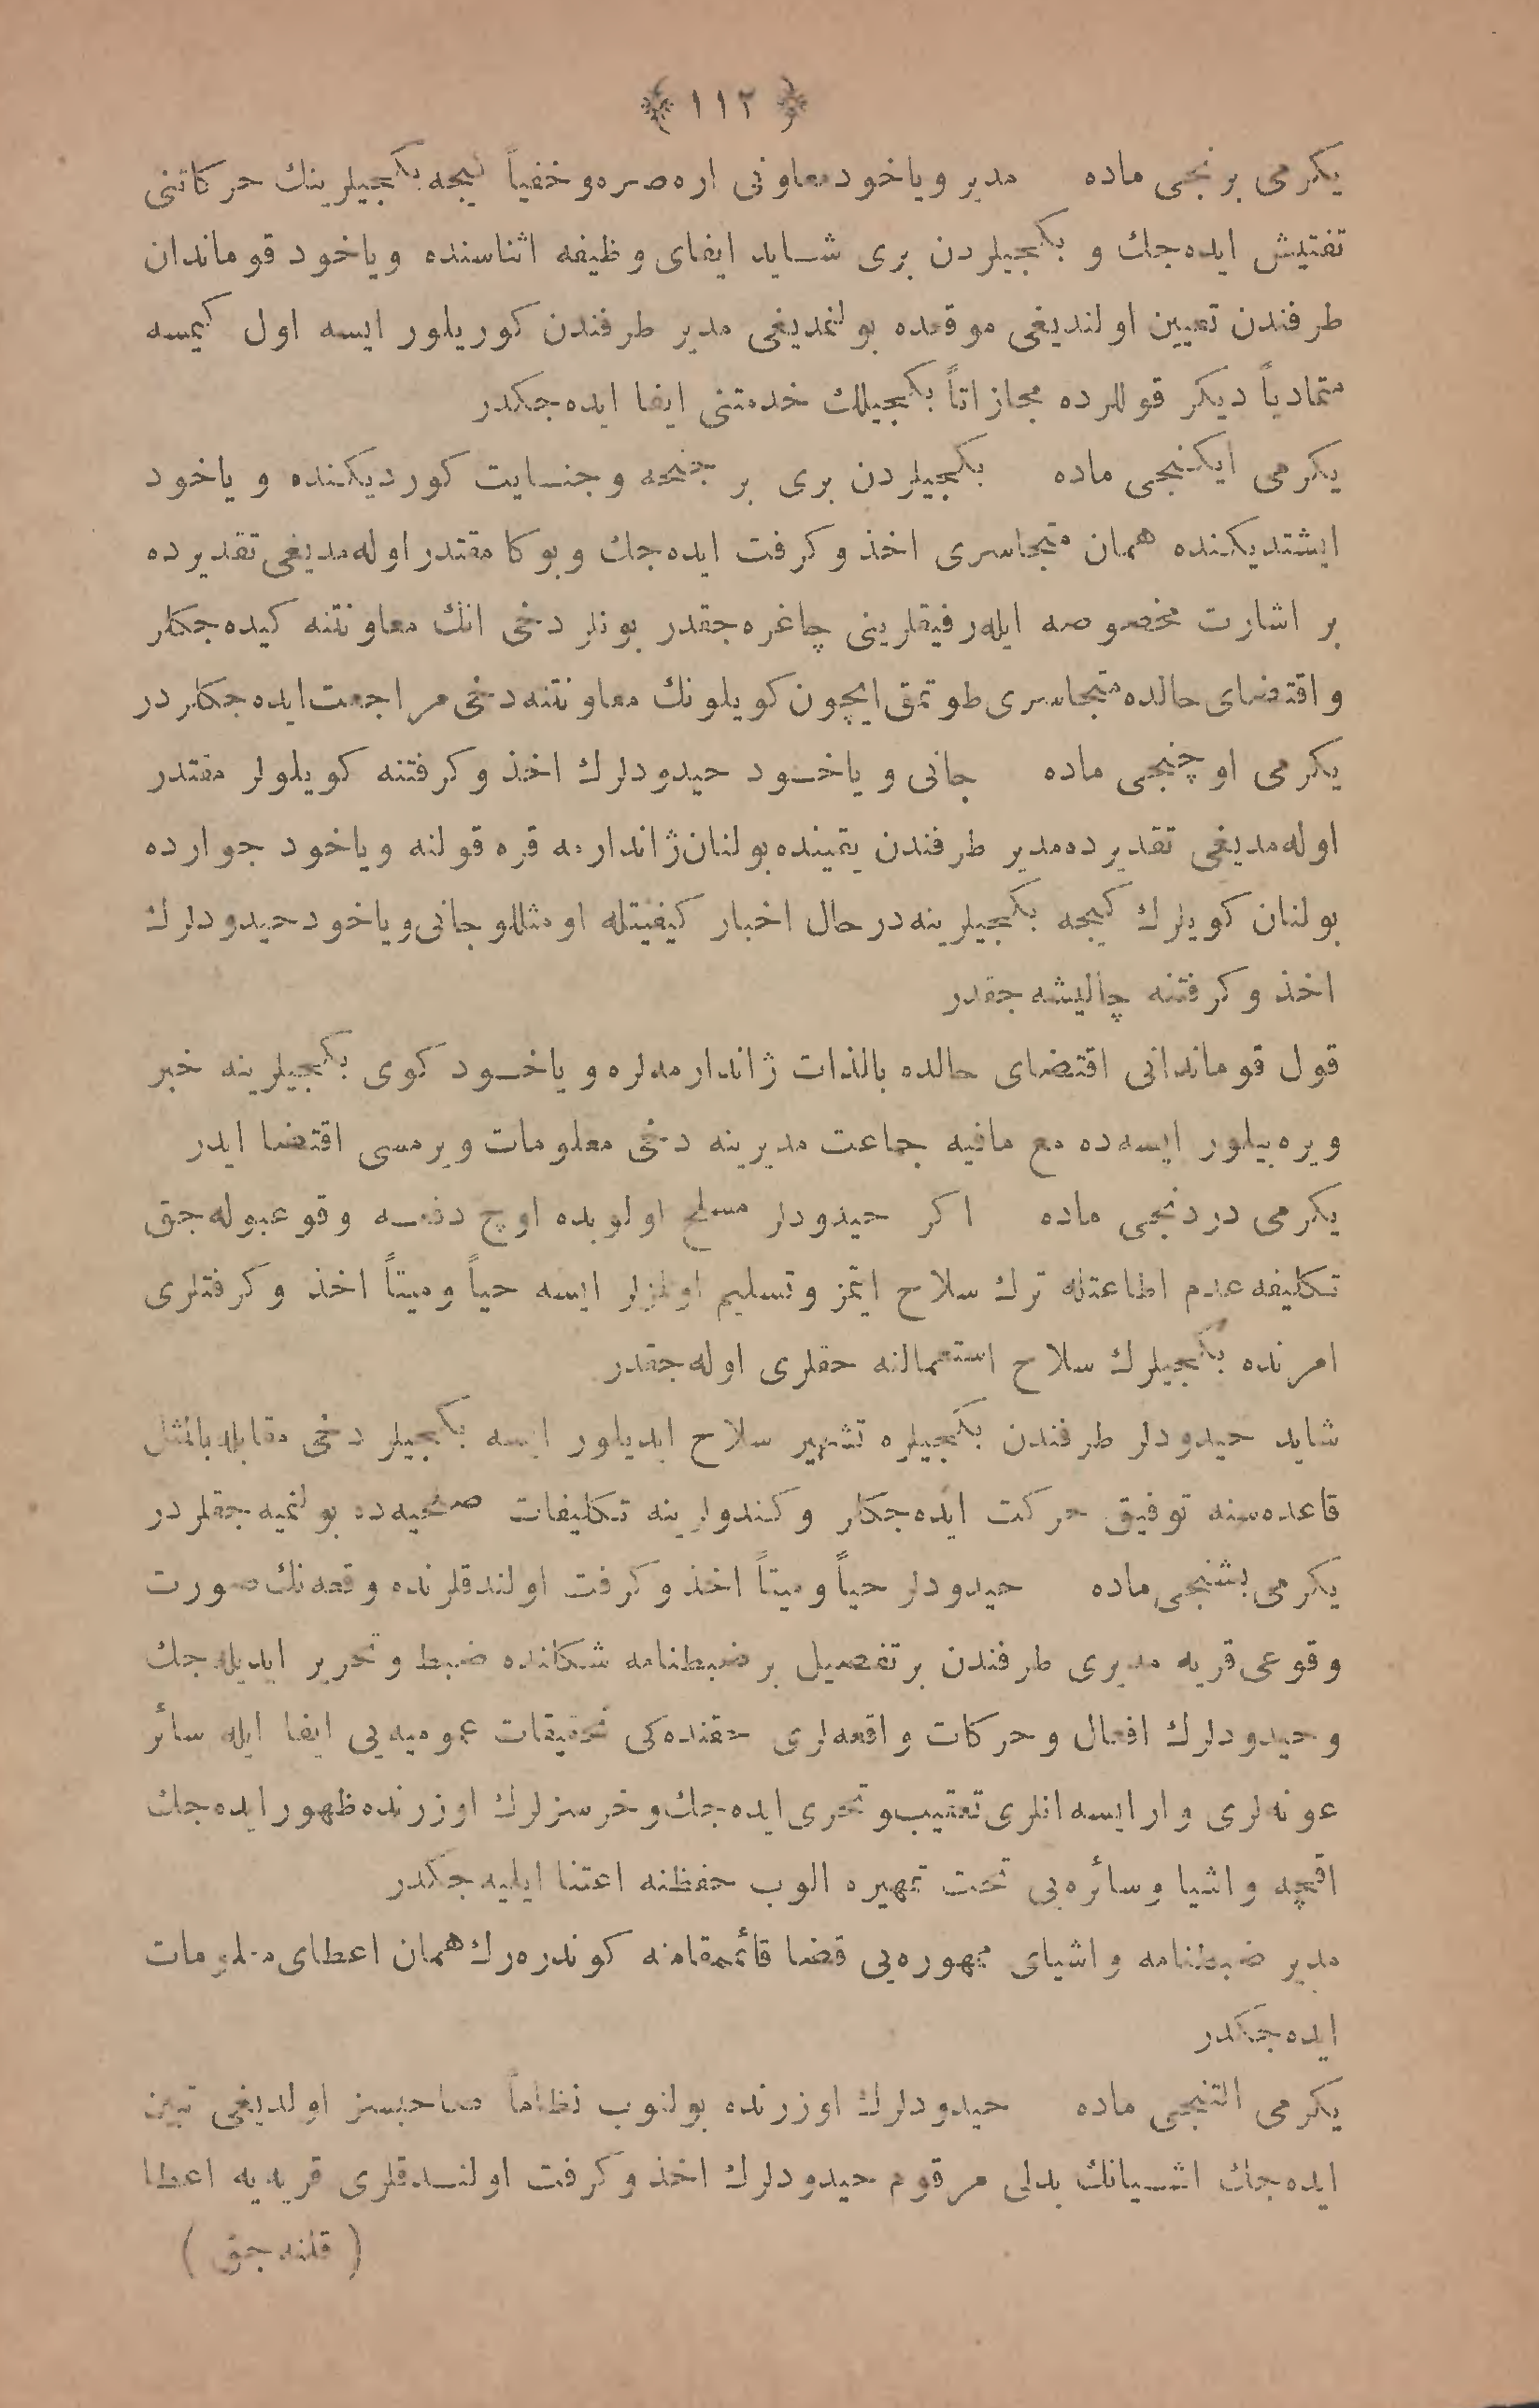 ﴿ ١١٢ ﴾
يكرمی برنجی ماده مدير وياخود معاونی اره‌صره و خفياً كيجه بكجيلرينك حركاتنی
تفتيش ايده‌جك و بكجيلردن بری شايد ايفای وظيفه اثناسنده وياخود قوماندان
طرفندن تعيين اولنديغی موقعده بولنمديغی مدير طرفندن كوريلور ايسه اول كيمسه
متمادياً ديكر قوللرده مجازاتاً بكجيلك خدمتنی ايفا ايده‌جكدر
يكرمی ايكنجی ماده بكجيلردن بری بر جنحه وجنايت كورديكنده و ياخود
ايشتديكنده همان متجاسری اخذ وكرفت ايده‌جك وبوكا مقتدر اوله‌مديغی تقديرده
بر اشارت مخصوصه ايله رفيقلرينی چاغره‌جقدر بونلر دخی انك معاونتنه كيده‌جكلر
واقتضای حالده متجاسری طوتمق ايچون كويلونك معاونتنه دخی مراجعت ايده‌جكلردر
يكرمی اوچنجی ماده جانی و ياخود حيدودلرك اخذ وكرفتنه كويلولر مقتدر
اوله‌مديغی تقديرده مدير طرفندن يقينده بولنان ژاندارمه قره‌قولنه وياخود جوارده
بولنان كويلرك كيجه بكجيلرينه درحال اخبار كيفيتله اومثللو جانی وياخود حيدودلرك
اخذ وكرفتنه چاليشه‌جقدر
قول قوماندانی اقتضای حالده بالذات ژاندارمه‌لره و ياخود كوی بكجيلرينه خبر
ويره‌بيلور ايسه‌ده مع مافيه جماعت مديرينه دخی معلومات ويرمسی اقتضا ايدر
يكرمی دردنجی ماده اكر حيدودلر مسلح اولوبده اوچ دفعه وقوعبوله‌جق
تكليفه عدم اطاعتله ترك سلاح ايتمز وتسليم اولمزلر ايسه حياً وميتاً اخذ وكرفتلری
امرنده بكجيلرك سلاح استعمالنه حقلری اوله‌جقدر
شايد حيدودلر طرفندن بكجيلره تشهير سلاح ايديلور ايسه بكجيلر دخی مقابله بالمثل
قاعده‌سنه توفيق حركت ايده‌جكلر وكندولرينه تكليفات صلحيه‌ده بولنميه‌جقلردر
يكرمی بشنجی ماده حيدودلر حياً وميتاً اخذ وكرفت اولندقلرنده وقعه‌نك صورت
وقوعی قريه مديری طرفندن برتفصيل بر ضبطنامه شكلنده ضبط وتحرير ايديله‌جك
وحيدودلرك افعال وحركات واقعه‌لری حقنده‌كی تحقيقات عموميه‌يی ايفا ايله سائر
عونه‌لری وار ايسه انلری تعقيب وتحری ايده‌جك وخرسزلرك اوزرنده ظهور ايده‌جك
اقچه واشيا وسائره‌يی تحت تمهيره الوب حفظنه اعتنا ايليه‌جكدر
مدير ضبطنامه واشيای ممهوره‌يی قضا قائممقامنه كوندره‌رك همان اعطای معلومات
ايده‌جكدر
يكرمی التنجی ماده حيدودلرك اوزرنده بولنوب نظاماً صاحبسز اولديغی تبين
ايده‌جك اشيانك بدلی مرقوم حيدودلرك اخذ وكرفت اولندقلری قريه‌يه اعطا
( قلنه‌جق )